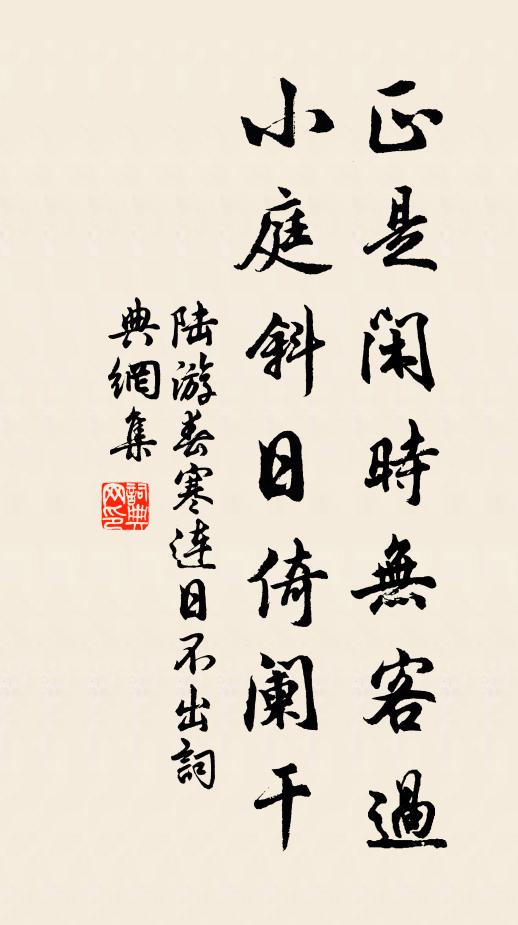 正是閑時無客過
小庭斜日倚闌干
陆游春寒連日不出詞
典網集
詞典
网印